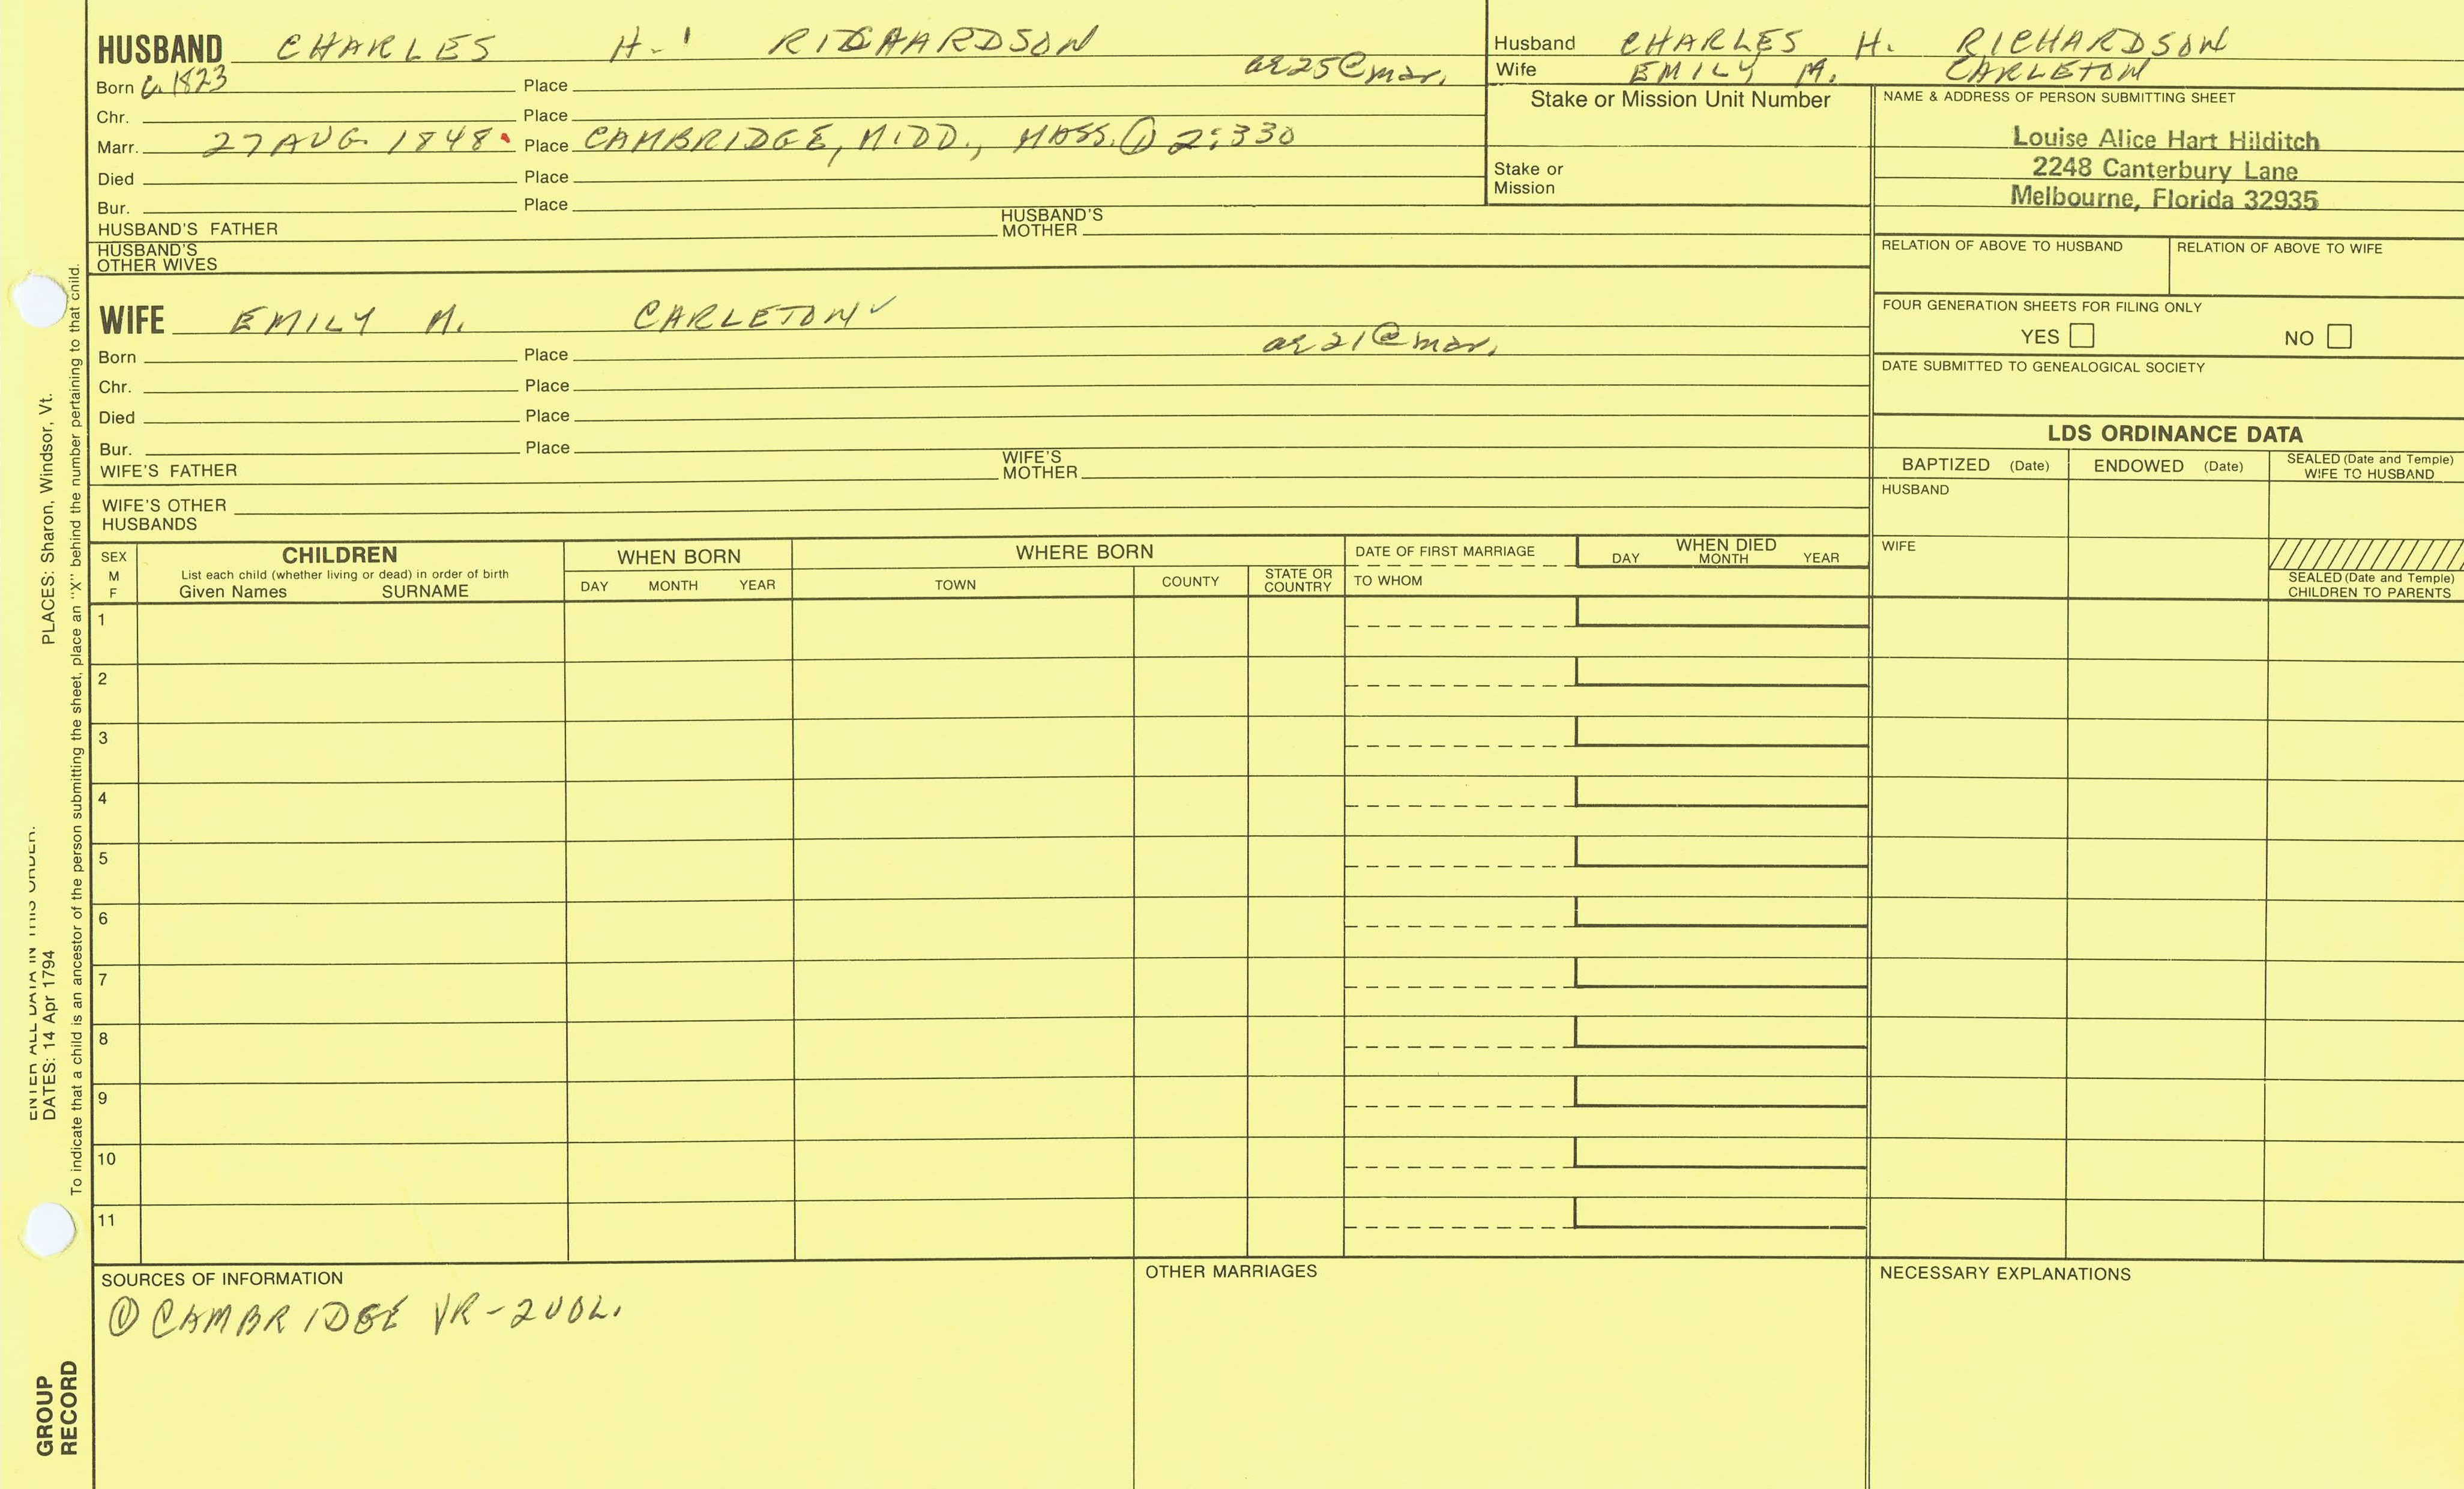 HUSBAND CHARLES H. RICHARDSON
Born c. 1823 Place ae 25 @ mar.
Chr. Place
Marr. 27 AUG. 1848 Place CAMBRIDGE, MIDD., MASS. ① 2:330
Died Place
Bur. Place
HUSBAND'S FATHER HUSBAND'S MOTHER
HUSBAND'S OTHER WIVES
WIFE EMILY M. CARLETON ✓
Born Place ae 21 @ mar.
Chr. Place
Died Place
Bur. Place
WIFE'S FATHER WIFE'S MOTHER
WIFE'S OTHER HUSBANDS
Husband CHARLES H. RICHARDSON
Wife EMILY M. CARLETON
Stake or Mission Unit Number
Stake or Mission
NAME & ADDRESS OF PERSON SUBMITTING SHEET
Louise Alice Hart Hilditch
2248 Canterbury Lane
Melbourne, Florida 32935
RELATION OF ABOVE TO HUSBAND RELATION OF ABOVE TO WIFE
FOUR GENERATION SHEETS FOR FILING ONLY
YES NO
DATE SUBMITTED TO GENEALOGICAL SOCIETY
LDS ORDINANCE DATA
BAPTIZED (Date) ENDOWED (Date) SEALED (Date and Temple) WIFE TO HUSBAND
HUSBAND
WIFE
SEALED (Date and Temple) CHILDREN TO PARENTS
SEX M F
CHILDREN
List each child (whether living or dead) in order of birth
Given Names SURNAME
WHEN BORN
DAY MONTH YEAR
WHERE BORN
TOWN COUNTY STATE OR COUNTRY
DATE OF FIRST MARRIAGE
TO WHOM
WHEN DIED
DAY MONTH YEAR
1
2
3
4
5
6
7
8
9
10
11
SOURCES OF INFORMATION
① CAMBRIDGE VR-2 VOL.
OTHER MARRIAGES
NECESSARY EXPLANATIONS
ENTER ALL DATA IN THIS ORDER.
DATES: 14 Apr 1794 PLACES: Sharon, Windsor, Vt.
To indicate that a child is an ancestor of the person submitting the sheet, place an "X" behind the number pertaining to that child.
GROUP
RECORD